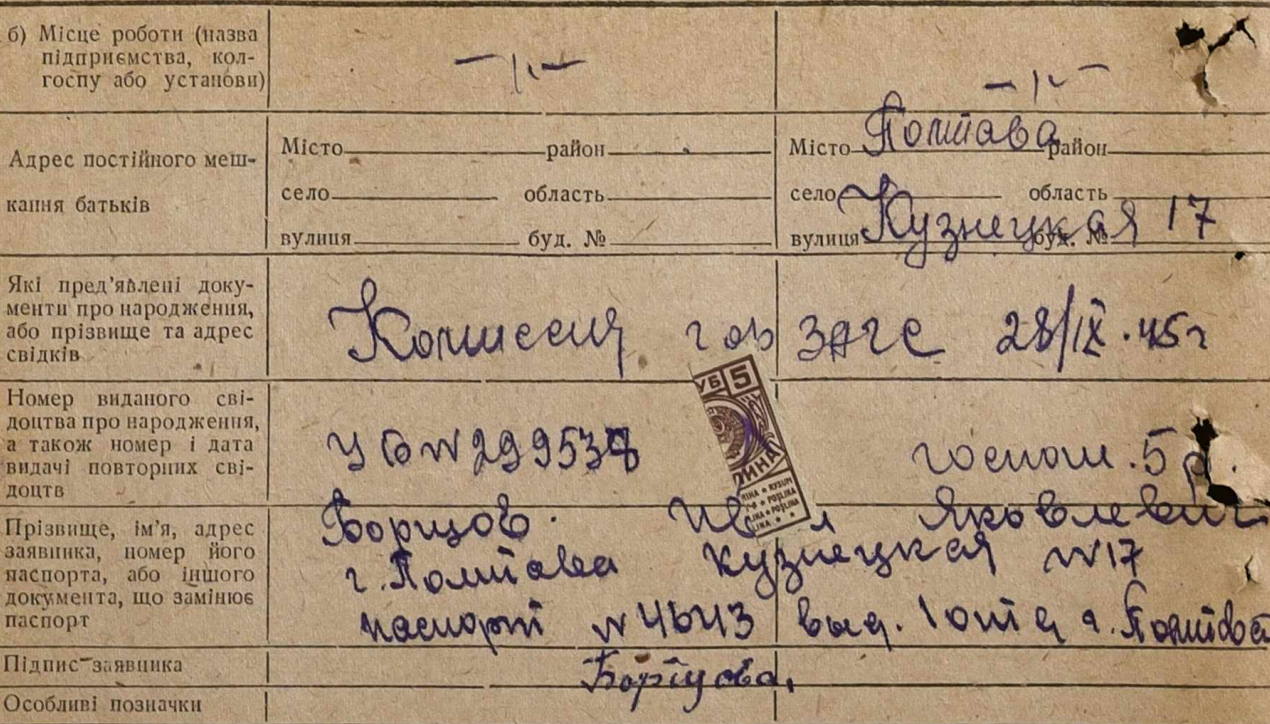 б) Місце роботи (назва
підприємства, кол-
госпу або установи)
—"— —"—
Адрес постійного меш-
кання батьків
Місто район Місто Полтава район
село область село область
вулиця буд. № вулиця Кузнецкая буд. № 17
Які пред'явлені доку-
менти про народження,
або прізвище та адрес
свідків
Комиссия гор ЗАГС 28/IX.45г
Номер виданого сві-
доцтва про народження,
а також номер і дата
видачі повторних сві-
доцтв
госпош. 5р.
УБ 5
Прізвище, ім'я, адрес
заявника, номер його
паспорта, або іншого
документа, що замінює
паспорт
Борщов Яковлевич
г. Полтава Кузнецкая №17
паспорт выд. г. Полтава
Підпис заявника
Борщова.
Особливі позначки